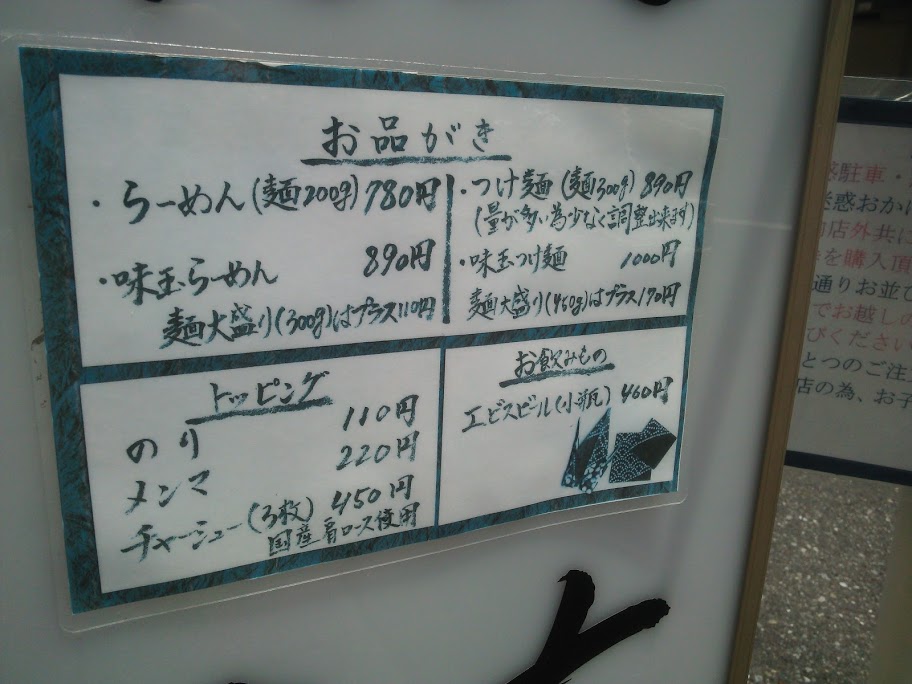 お品がき
・らーめん(麺200g)780円
・味玉らーめん 890円
麺大盛り(300g)はプラス110円
・つけ麺(麺300g)890円
(量が多い為少なく調整出来ます)
・味玉つけ麺 1000円
麺大盛り(450g)はプラス170円
トッピング
のり 110円
メンマ 220円
チャーシュー(3枚) 450円
国産肩ロース使用
お飲みもの
エビスビール(小瓶) 460円
駐車・
迷惑おかけ
店外共に
を購入頂
通りお並び
でお越しの
びください
とつのご注
店の為、お子